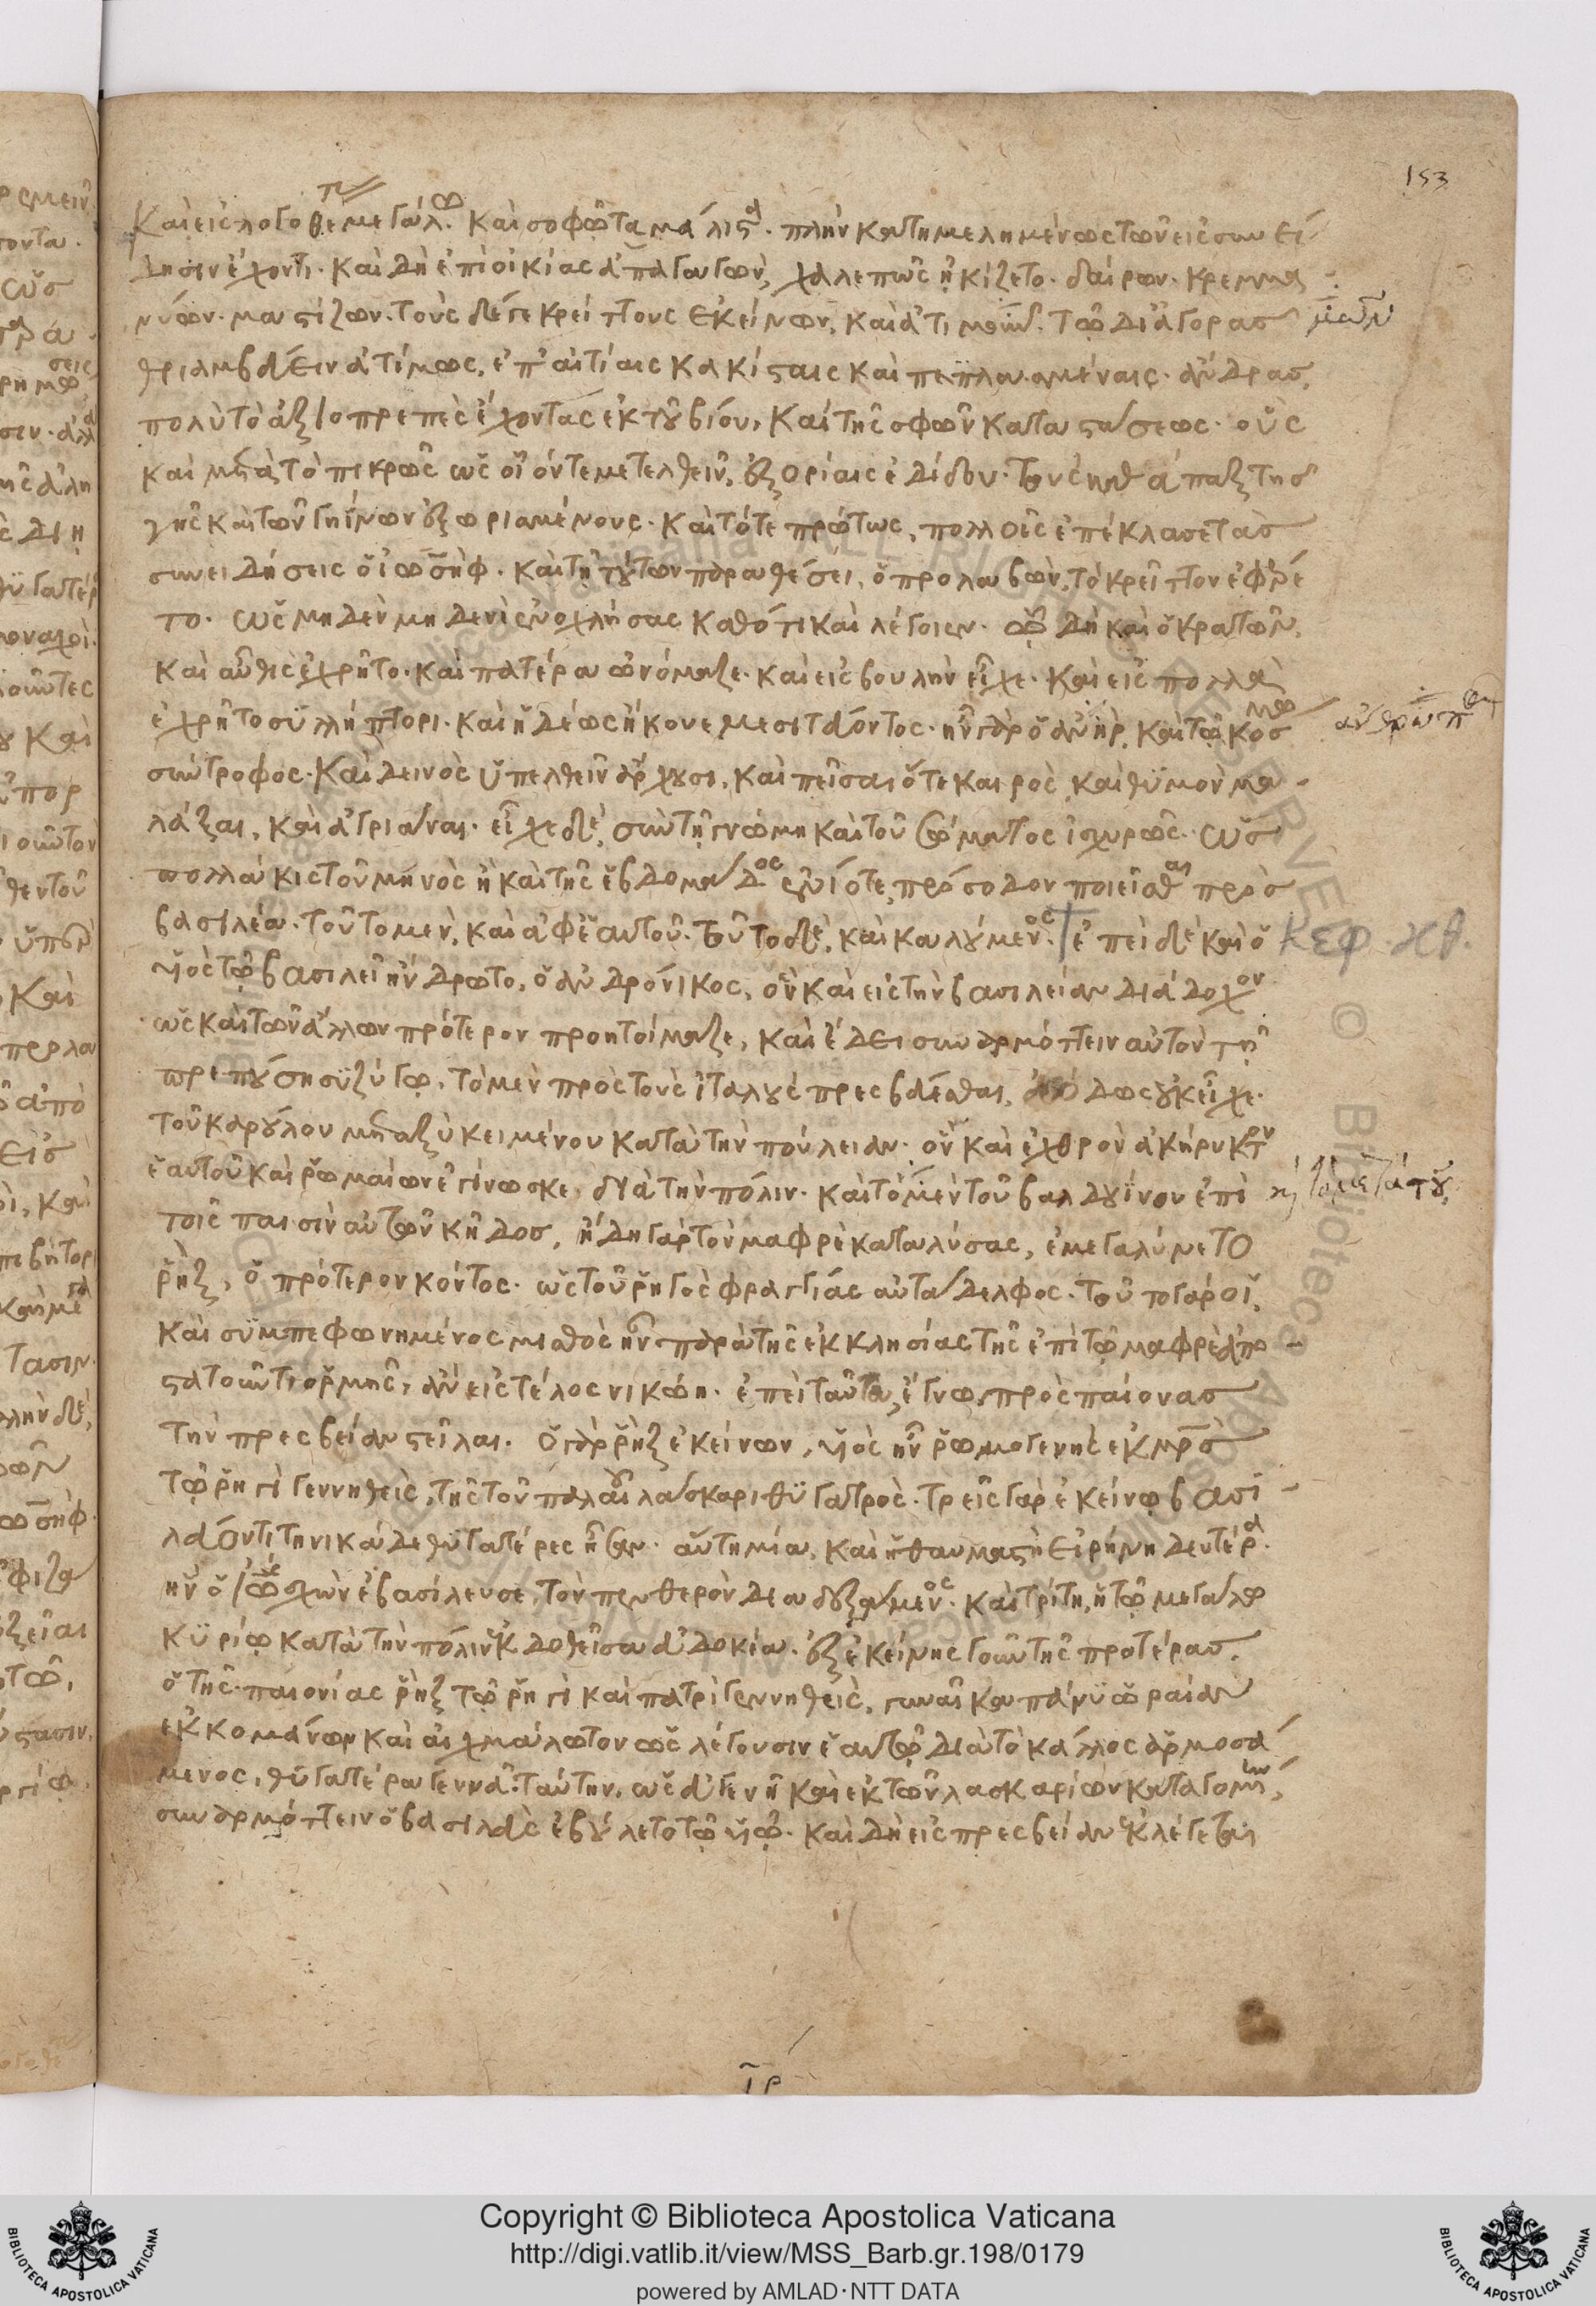 153
καὶ εἰς λογοθέτῃ μεγάλω. καὶ σοφῶ τὰ μάλιστα. πλὴν κατημελημένως τῶν εἰς συνεί
δησιν ἔχοντι. καὶ δὴ ἐπ' οἰκίας ἀπαγαγὼν, χαλεπῶς ἠκίζετο. δαίρων. κρεμνα
νύων. μαστίζων. τοὺς δέ γε κρείττους ἐκείνων, καὶ ἀτιμοῦν. τῶ δι' ἀγορᾶς
θριαμβεύειν ἀτίμως, ἐπ' αἰτίαις κακίσταις καὶ πεπλασμέναις. ἄνδρας,
πολὺ τὸ ἀξιοπρεπὲς ἔχοντας ἐκ τοῦ βίου, καὶ τῆς σφῶν καταστάσεως. οὓς
καὶ μετὰ τὸ πικρῶς ὡς οἷόν τε μετελθεῖν, ἐξορίαις ἐδίδου. τοὺς καθάπαξ τῆς
γῆς καὶ τῶν γηΐνων ἐξωρισμένους. καὶ τότε πρώτως, πολλοῖς ἐπέκλασε τὰς
συνειδήσεις ὁ ἰωσὴφ. καὶ τῇ τούτων παραθέσει, ὁ προλαβὼν, τὸ κρεῖττον ἐφέρε
το. ὡς μηδὲν μηδενὶ ἐνοχλήσας καθότι καὶ λέγοιεν. ᾧ δὴ καὶ ὁ κρατῶν,
καὶ αὖθις ἐχρῆτο. καὶ πατέρα ὠνόμαζε. καὶ εἰς βουλὴν εἶχε. καὶ εἰς πολλὰ
ἐχρῆτο συλλήπτορι. καὶ ἡδέως ἤκουε μεσιτεύοντος. ἦν γὰρ ὁ ἀνὴρ, καὶ τῶ κόσμω
σύντροφος. καὶ δεινὸς ὑπελθεῖν ἄρχουσι, καὶ πεῖσαι ὅτε καιρὸς, καὶ θυμὸν μα
λάξαι, καὶ ἀγριᾶναι. εἶχε δὲ, σὺν τῇ γνώμῃ καὶ τοῦ σώματος ἰσχυρῶς. ὡς
πολλάκις τοῦ μηνὸς ἢ καὶ τῆς ἑβδομάδος ἐνίοτε, πρόσοδον ποιεῖσθαι πρὸς
βασιλέα. τοῦτο μὲν, καὶ ἀφ' ἑαυτοῦ. τοῦτο δὲ, καὶ καλούμενος. ἐπεὶ δὲ καὶ ὁ
υἱὸς τῶ βασιλεῖ ἤνδρωτο, ὁ ἀνδρόνικος, ὃν καὶ εἰς τὴν βασιλείαν διάδοχον
ὡς καὶ τῶν ἄλλων πρότερον προητοίμαζε, καὶ ἔδει συναρμόττειν αὐτὸν τῇ
πρεπούσῃ συζύγω, τὸ μὲν πρὸς τοὺς ἰταλοὺς πρεσβεύεσθαι, ἀδεῶς οὐκ εἶχε.
τοῦ καρούλου μεταξὺ κειμένου κατὰ τὴν πούλειαν. ὃν καὶ ἐχθρὸν ἀκήρυκτον
ἑαυτοῦ καὶ ῥωμαίων ἐγίνωσκε, διὰ τὴν πόλιν. καὶ τὸ μὲν τοῦ βαλδουΐνου ἐπὶ
τοῖς παισὶν αὐτῶν κῆδος, ἤδη γὰρ τὸν μαφρὲ καταλύσας, ἐμεγαλύνετο
ῥὴξ, ὁ πρότερον κόντος. ὡς τοῦ ῥηγὸς φραγγίας αὐτάδελφος. τοῦτο γάρ οἱ,
καὶ συμπεφωνημένος μισθὸς ἦν παρὰ τῆς ἐκκλησίας τῆς ἐπὶ τῶ μαφρὲ ἀπο
στατοῦντι ὁρμῆς, ἂν εἰς τέλος νικώη. ἐπεὶ ταῦτα, ἔγνω πρὸς παίονας
τὴν πρεσβείαν στεῖλαι. ὁ γὰρ ῥὴξ ἐκείνων, υἱὸς ἦν ῥωμογενὴς ἐκ μητρὸς
τῶ ῥηγὶ γεννηθεὶς, τῆς τοῦ παλαιοῦ λάσκαρι θυγατρὸς. τρεῖς γὰρ ἐκείνω βασι
λεύοντι τηνικάδε θυγατέρες ἦσαν. αὕτη μία, καὶ ἡ θαυμαστὴ εἰρήνη δευτέρα.
ἣν ὁ ἰωάννης σχὼν ἐβασίλευσε, τὸν πενθερὸν διαδεξάμενος. καὶ τρίτη, ἡ τῶ μεγάλω
κυρίω κατὰ τὴν πόλιν ἐκδοθεῖσα εὐδοκία. ἐξ ἐκείνης γοῦν τῆς προτέρας,
ὁ τῆς παιονίας ῥὴξ τῶ ῥηγὶ καὶ πατρὶ γεννηθεὶς, γυναῖκα πάνυ ὡραίαν
ἐκ κομάνων καὶ αἰχμάλωτον ὡς λέγουσιν ἑαυτῶ διὰ τὸ κάλλος ἁρμοσά
μενος, θυγατέρα γεννᾶ. ταύτην, ὡς εὐγενῆ καὶ ἐκ τῶν λασκαρίων καταγομένην,
συναρμόττειν ὁ βασιλεὺς ἐβούλετο τῶ υἱῶ. καὶ δὴ εἰς πρεσβείαν ἐκλέγεται
κεφ κθ.
Copyright © Biblioteca Apostolica Vaticana
http://digi.vatlib.it/view/MSS_Barb.gr.198/0179
powered by AMLAD·NTT DATA
BIBLIOTECA APOSTOLICA VATICANA
BIBLIOTECA APOSTOLICA VATICANA